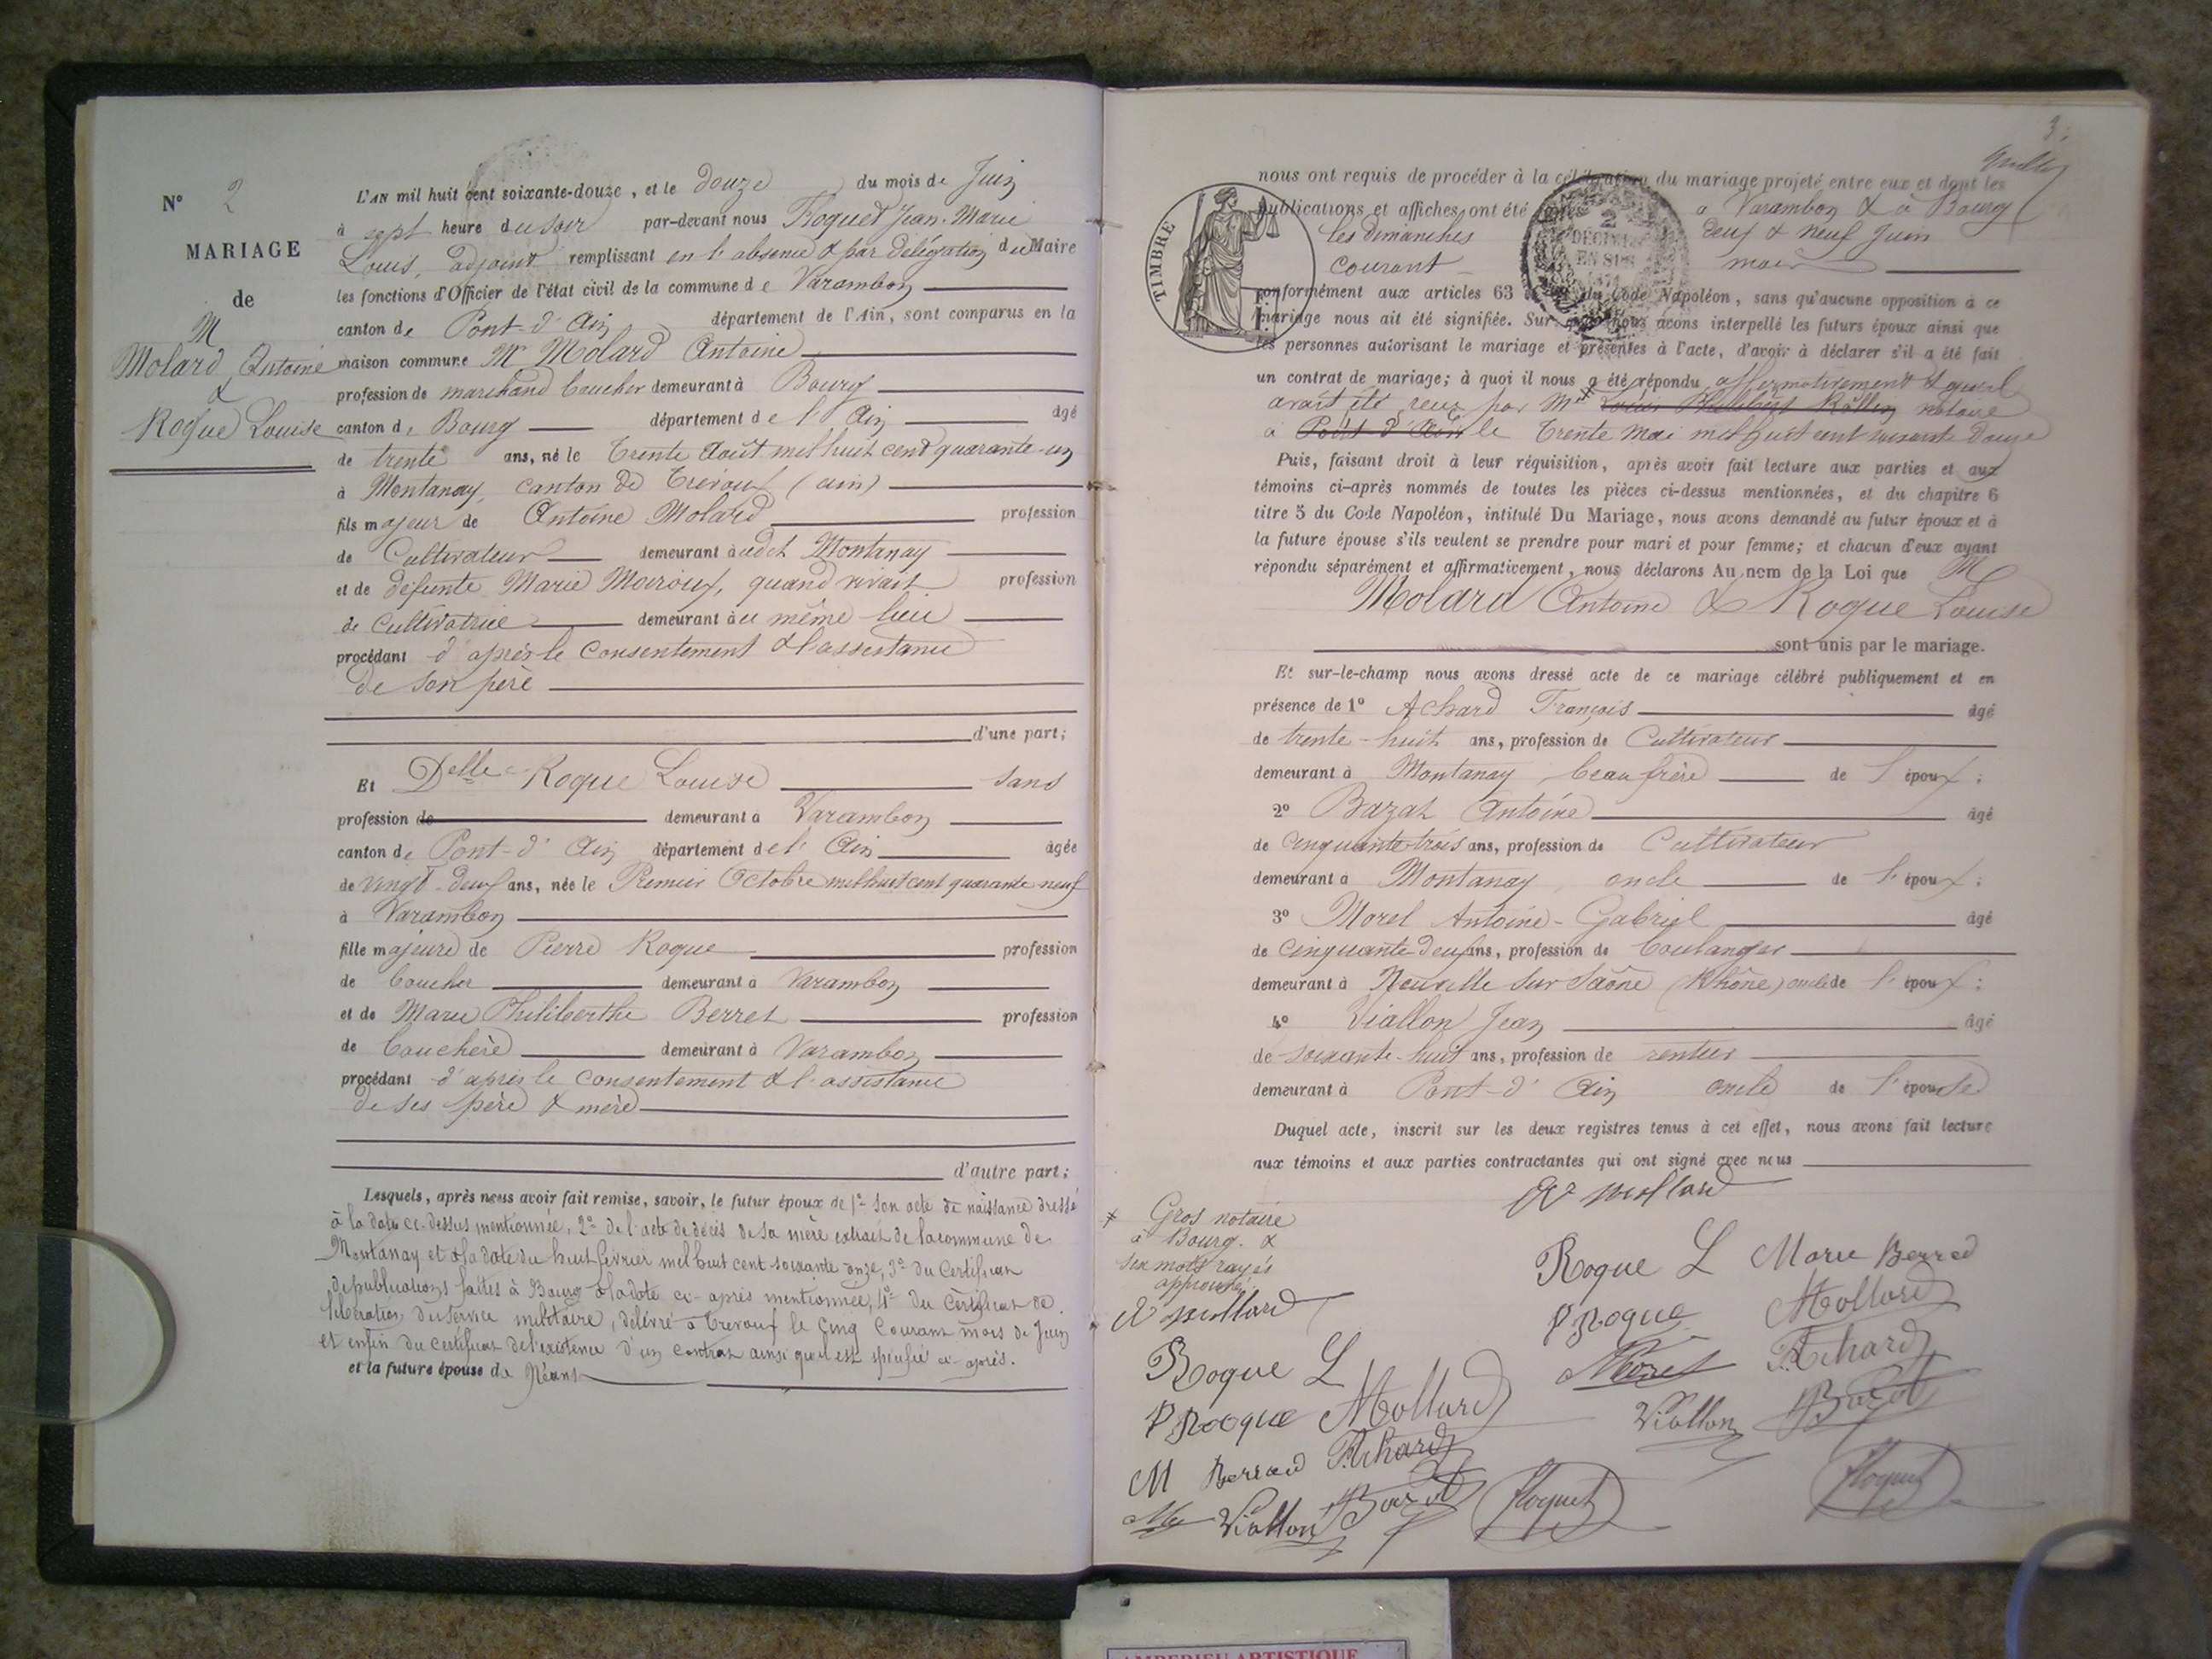 N° 2
MARIAGE
de
M
Molard Antoine
&
Roque Louise
L'AN mil huit cent soixante-douze, et le douze du mois de Juin
à sept heure du soir par-devant nous Floquet Jean-Marie
Louis, adjoint remplissant en l'absence & par délégation du Maire
les fonctions d'Officier de l'état civil de la commune de Varambon
canton de Pont-d'Ain département de l'Ain, sont comparus en la
maison commune Mr Molard Antoine
profession de marchand boucher demeurant à Bourg
canton de Bourg département de l'Ain âgé
de trente ans, né le trente Août mil huit cent quarante-un
à Montanay, canton de Trévoux (ain)
fils majeur de Antoine Molard profession
de Cultivateur demeurant audit Montanay
et de défunte Marie Moiroux, quand vivait profession
de Cultivatrice demeurant au même lieu
procédant d'après le consentement & l'assistance
de son père
d'une part;
Et Delle Roque Louise sans
profession de demeurant à Varambon
canton de Pont-d'Ain département de l'Ain âgée
de vingt-deux ans, née le Premier Octobre mil huit cent quarante neuf
à Varambon
fille majeure de Pierre Roque profession
de boucher demeurant à Varambon
et de Marie Philiberthe Berret profession
de bouchère demeurant à Varambon
procédant d'après le consentement & l'assistance
de ses père & mère
d'autre part;
Lesquels, après nous avoir fait remise, savoir, le futur époux de 1° son acte de naissance dressé
à la date ci-dessus mentionnée, 2° de l'acte de décès de sa mère extrait de la commune de
Montanay et à la date du huit février mil huit cent soixante onze, 3° du Certificat
de publications faites à Bourg à la date ci-après mentionnée, 4° du Certificat de
libération du service militaire, délivré à Trevoux le cinq courant mois de Juin
et enfin du certificat de l'existence d'un contrat ainsi qu'il est spécifié ci-après.
et la future épouse de Néant
3.
nous ont requis de procéder à la célébration du mariage projeté entre eux et dont les
publications et affiches ont été à Varambon & à Bourg
les dimanches deux & neuf Juin
courant mois
TIMBRE
2
DÉCIMES
EN SUS
1871
conformément aux articles 63 du Code Napoléon, sans qu'aucune opposition à ce
mariage nous ait été signifiée. Sur quoi nous avons interpellé les futurs époux ainsi que
les personnes autorisant le mariage et présentes à l'acte, d'avoir à déclarer s'il a été fait
un contrat de mariage; à quoi il nous a été répondu affirmativement & qu'il
avait été reçu par Me Louis Philibert Rollin notaire
à Pont d'Ain le trente mai mil huit cent soixante douze
Puis, faisant droit à leur réquisition, après avoir fait lecture aux parties et aux
témoins ci-après nommés de toutes les pièces ci-dessus mentionnées, et du chapitre 6
titre 5 du Code Napoléon, intitulé Du Mariage, nous avons demandé au futur époux et à
la future épouse s'ils veulent se prendre pour mari et pour femme; et chacun d'eux ayant
répondu séparément et affirmativement, nous déclarons Au nom de la Loi que M
Molard Antoine & Roque Louise
sont unis par le mariage.
Et sur-le-champ nous avons dressé acte de ce mariage célébré publiquement et en
présence de 1° Achard François âgé
de trente-huit ans, profession de Cultivateur
demeurant à Montanay beau frère de l'époux;
2° Bazat Antoine âgé
de cinquante-trois ans, profession de Cultivateur
demeurant à Montanay oncle de l'époux;
3° Morel Antoine-Gabriel âgé
de cinquante-deux ans, profession de boulanger
demeurant à Neuville sur Saône (Rhône) oncle de l'époux;
4° Viallon Jean âgé
de soixante-huit ans, profession de rentier
demeurant à Pont-d'Ain oncle de l'épouse
Duquel acte, inscrit sur les deux registres tenus à cet effet, nous avons fait lecture
aux témoins et aux parties contractantes qui ont signé avec nous
Gros notaire
à Bourg. &
six mots rayés
approuvés
Ae mollard
Roque L Marie Berred
P Roque Mollard
Morel F. Achard
Viallon Bazat
Floquet
Ae mollard
Roque L
P Roque Mollard
M Berred F. Achard
Viallon Bazat Floquet
AMBERIEU ARTISTIQUE